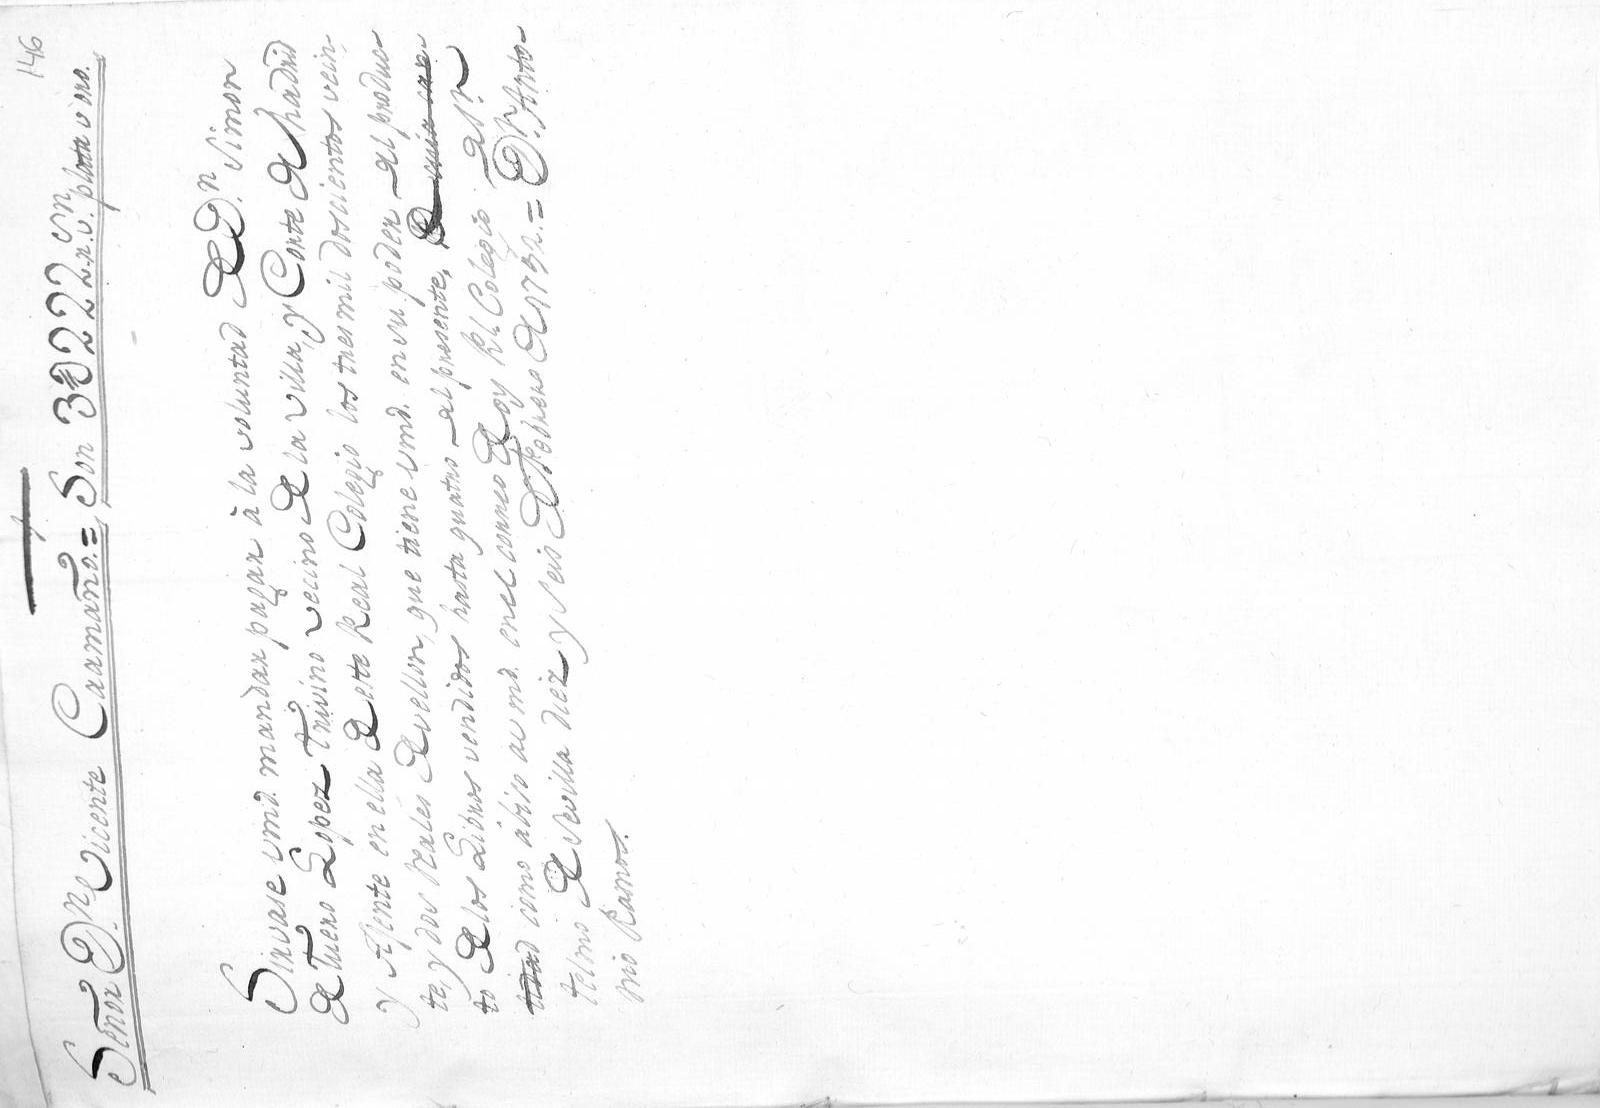 146
Señor D.n Vicente Caamaño.= Son 3U222 r.s v.n plata v ona.
Sirvase vmd. mandar pagar à la voluntad de D.n Simon
de Tuero Lopez Triviño vecino de la villa, y Corte de Madrid
y Ajente en ella de este Real Colegio los tres mil doscientos vein-
te, y dos reales de vellon, que tiene vmd. en su poder del produc-
to de los Libros vendidos hasta quatro del presente,
como abiso a vmd. en el correo de oy Rl. Colegio de S.n
Telmo de Sevilla diez y seis de Febrero de 1752.= D.n Anto-
nio Ramos.